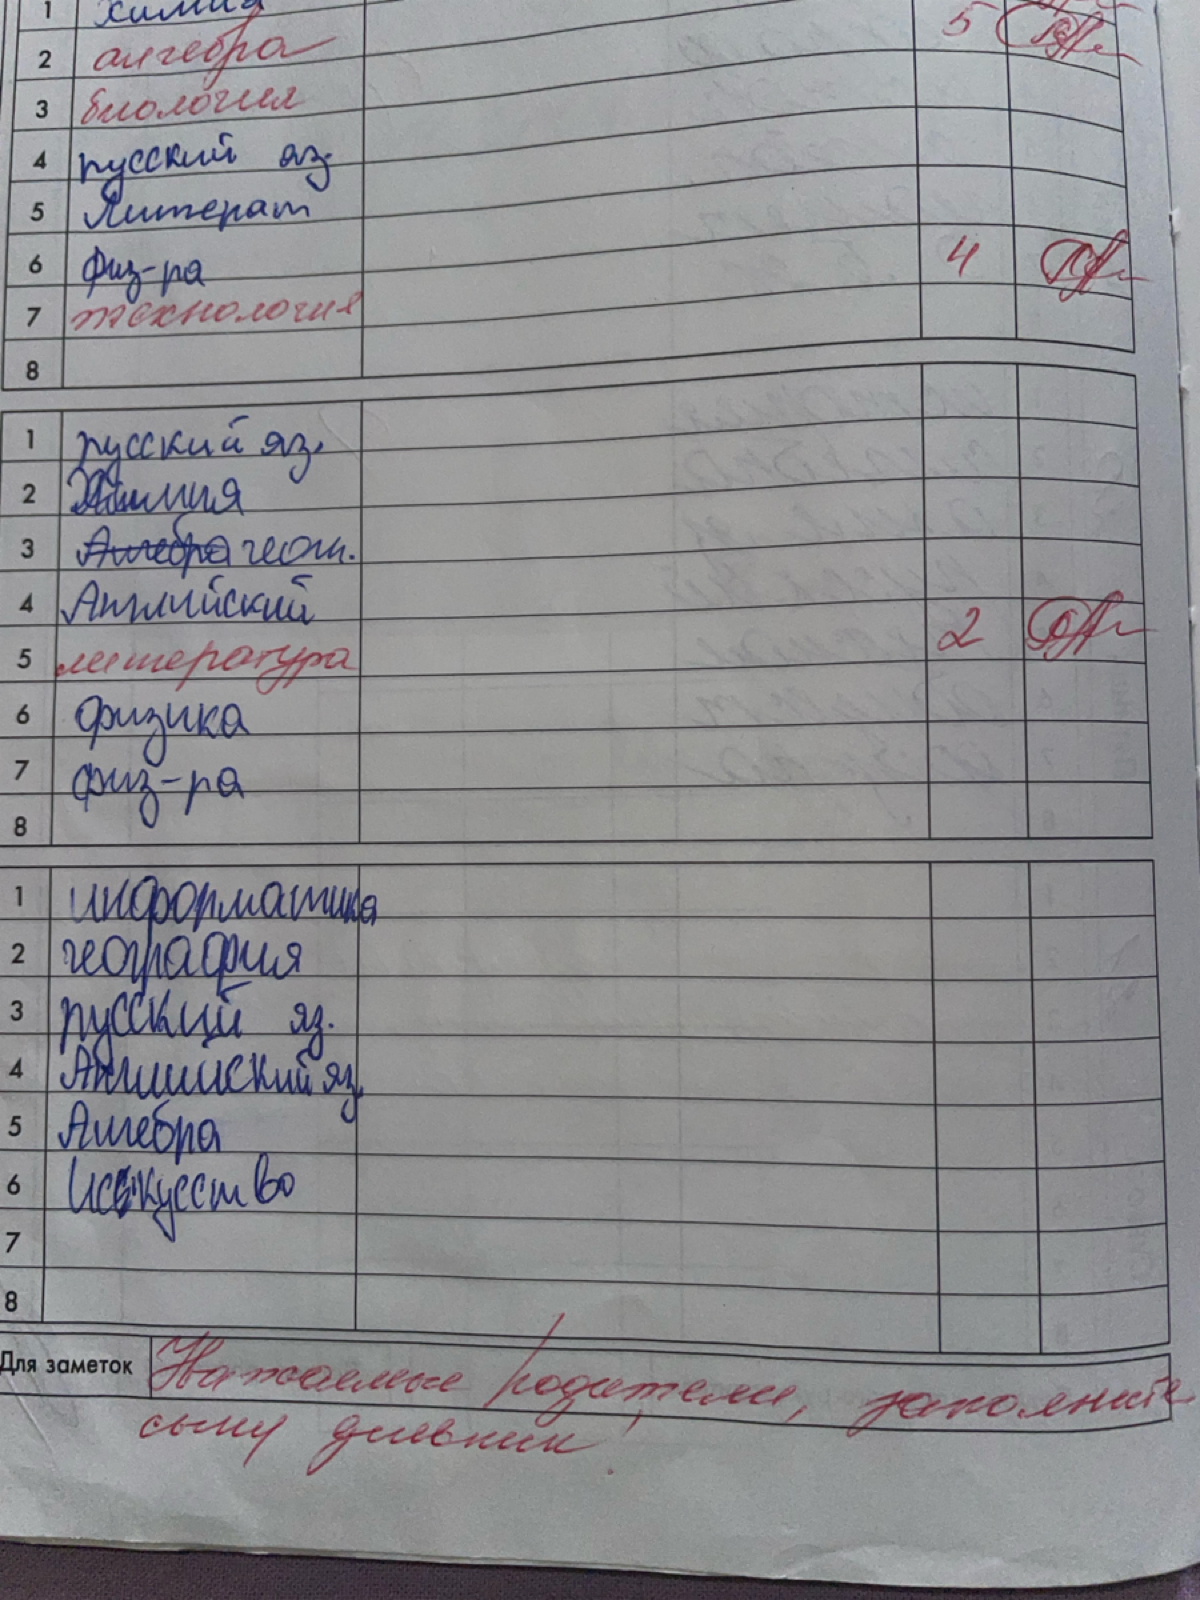 1 химия
2 алгебра 5
3 биология
4 русский яз.
5 Литерат
6 Физ-ра 4
7 технология
8
1 русский яз.
2 Химия
3 Алгебра геом.
4 Английский
5 литература 2
6 физика
7 физ-ра
8
1 информатика
2 география
3 русский яз.
4 Английский яз.
5 Алгебра
6 Исскусство
7
8
Для заметок родители, заполните
сыну дневник!